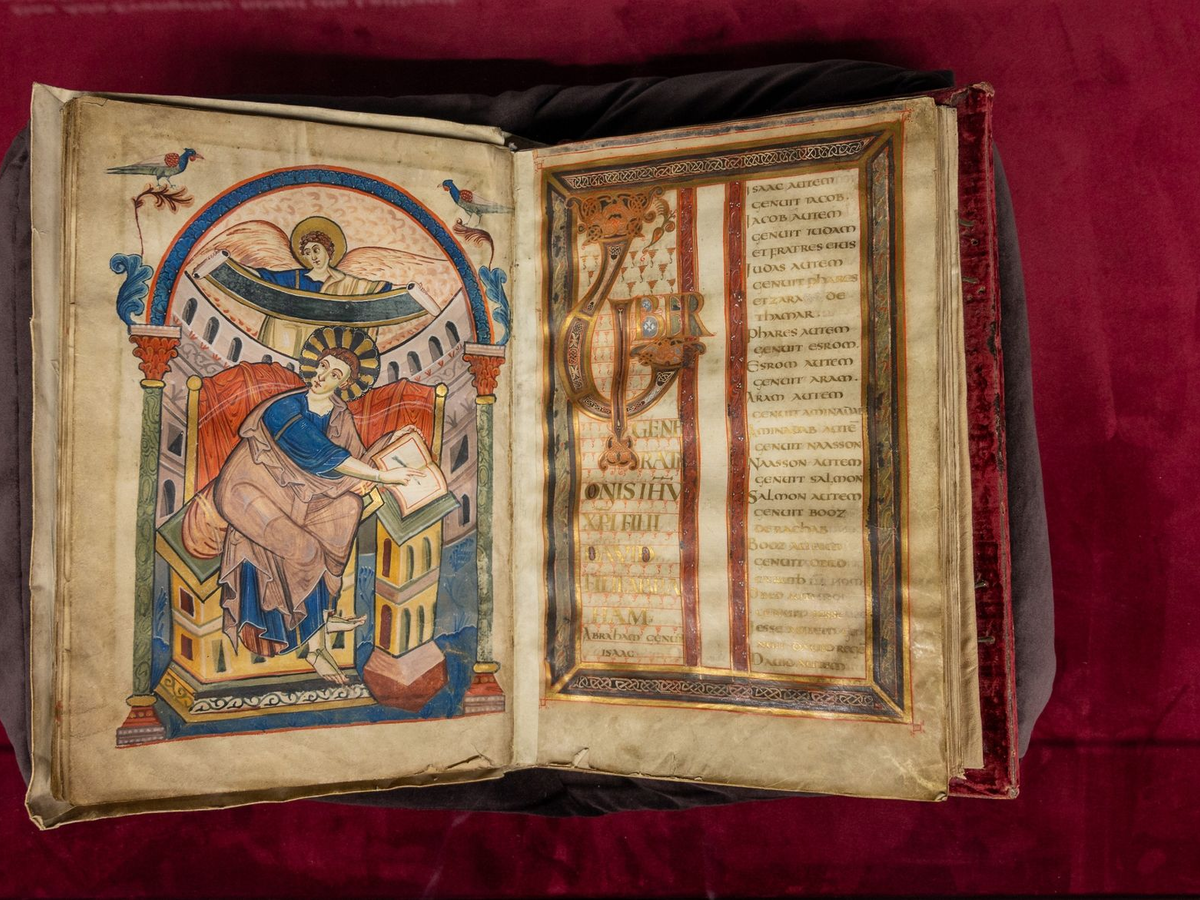 LIBER
GENE
RATI
ONIS IHV
XPI FILII
DAVID
FILII ABRA
HAM
ABRAHAM GENUIT
ISAAC
ISAAC AUTEM
GENUIT IACOB.
IACOB AUTEM
GENUIT IUDAM
ET FRATRES EIUS
IUDAS AUTEM
GENUIT PHARES
ET ZARA DE
THAMAR
PHARES AUTEM
GENUIT ESROM.
ESROM AUTEM
GENUIT ARAM.
ARAM AUTEM
GENUIT AMINADAB
AMINADAB AUTE
GENUIT NAASSON
NAASSON AUTEM
GENUIT SALMON
SALMON AUTEM
GENUIT BOOZ
DE RACHAB
BOOZ AUTEM
GENUIT OBED
DAVID AUTEM